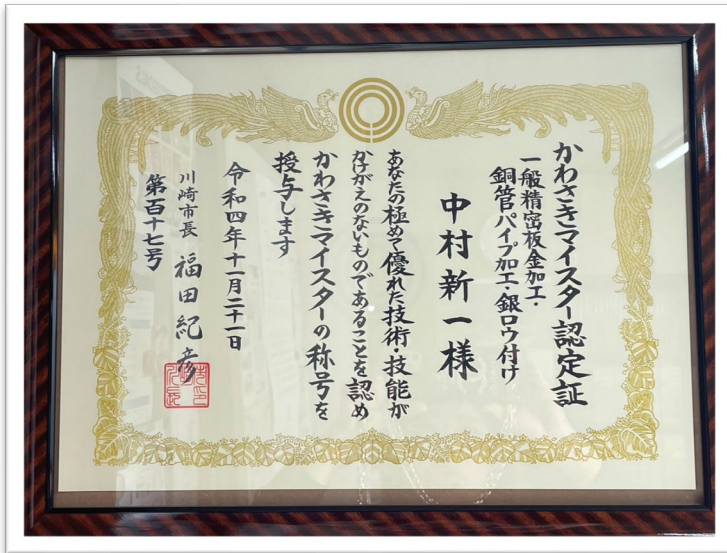 かわさきマイスター認定証
一般精密板金加工・
銅管パイプ加工・銀ロウ付け
中村新一様
あなたの極めて優れた技術・技能が
かけがえのないものであることを認め
かわさきマイスターの称号を
授与します
令和四年十一月二十一日
川崎市長 福田紀彦
第百十七号